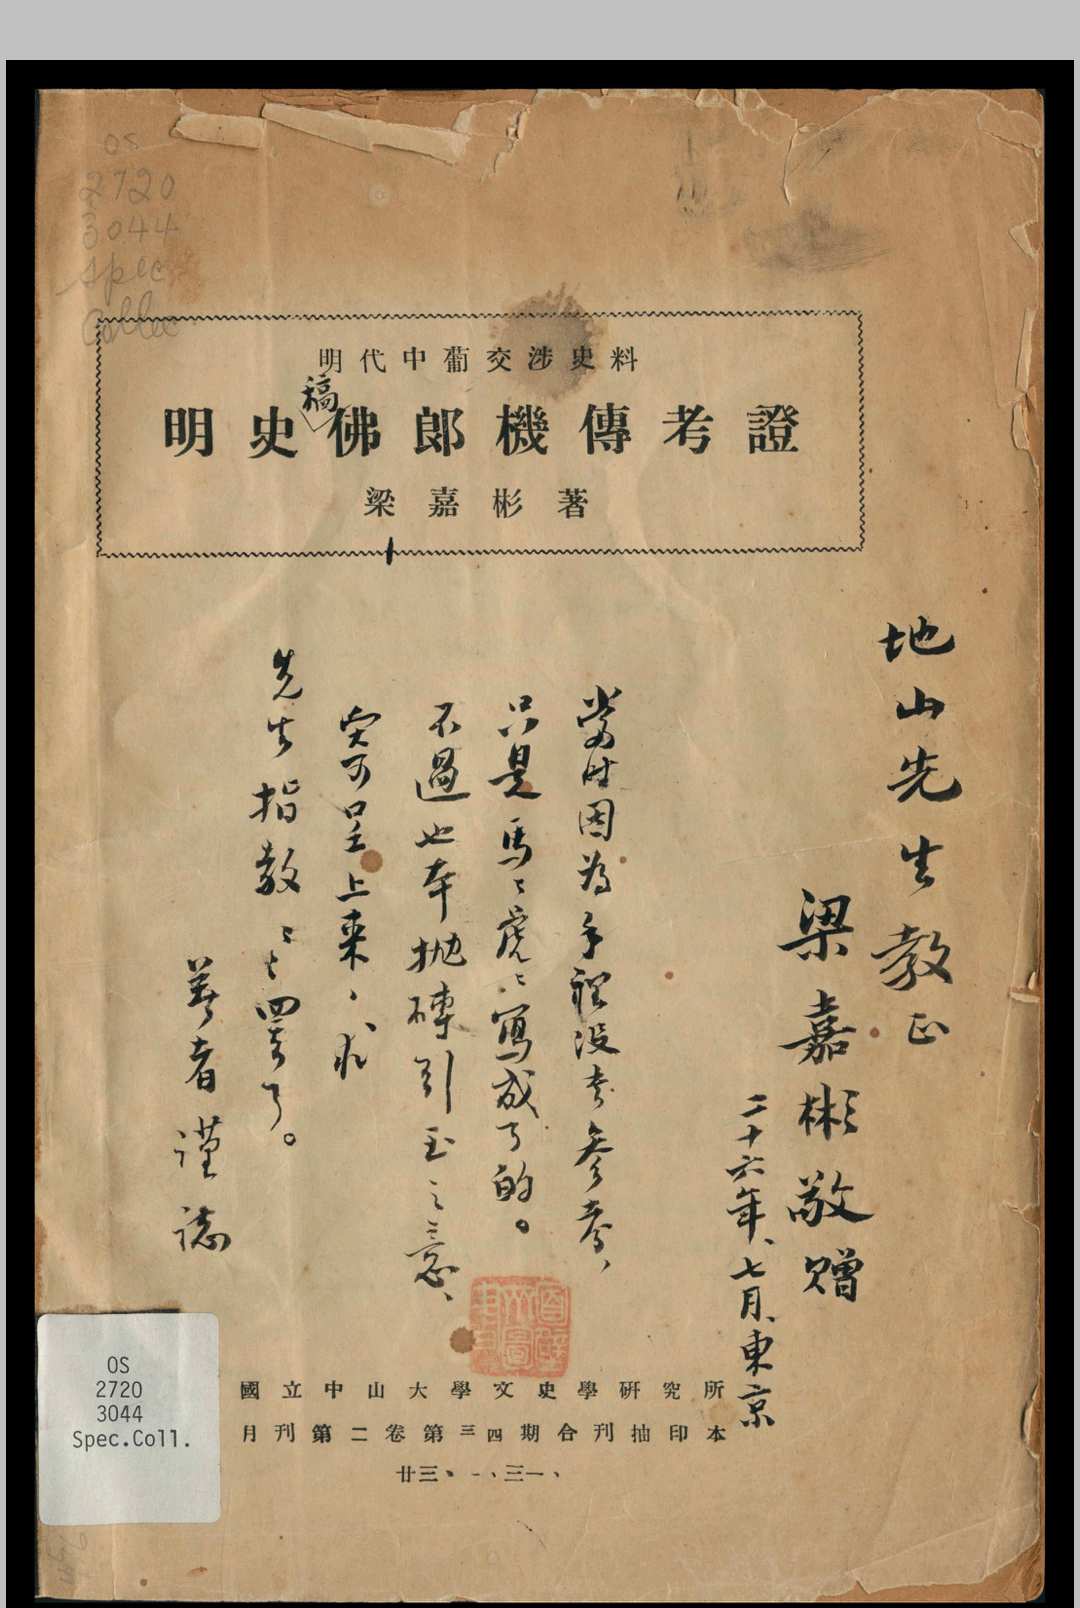 OS
2720
3044
Spec
Collec
明代中葡交涉史料
明史稿佛郎機傳考證
梁嘉彬著
地山先生教正
梁嘉彬敬贈
二十六年、七月、東京
當時因為手裡没書參考、
只是馬〻虎〻寫成了的。
不過也本抛磚引玉之意、
呈上來、求
先生指教〻〻
著者謹誌
國立中山大學文史學研究所
月刊第二卷第三四期合刊抽印本
廿三、一、三一、
OS
2720
3044
Spec.Coll.